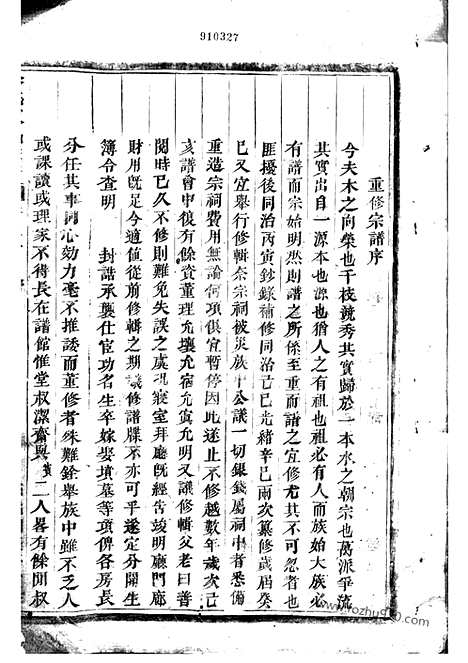 910327
重修宗譜序
今夫木之向榮也千枝競秀其實歸於一本水之朝宗也萬派爭流
其實出自一源本也源也猶人之有祖也祖必有人而族始大族必
有譜而宗始明然則譜之所係至重而譜之宜修尤其不可忽者也
匪擾後同治丙寅鈔錄補修同治己巳光緒辛巳兩次纂修歲屆癸
巳又宜舉行修輯奈宗祠被災族中公議一切銀錢屬祠中者悉備
重造宗祠費用無論何項俱宜暫停因此遂止不修越數年歲次己
亥譜會中復有餘資董理允壤允宿允寅允明又議修輯父老曰普
閱時已久不修則難免失誤之虞況寢室拜廳既經告竣明廳門廊
財用既足今適值從前修輯之期議修譜牒不亦可乎遂定分開生
簿令查明　封誥承襲仕宦功名生卒嫁娶墳墓等項俾各房長
分任其事同心効力毫不推諉而董修者殊難銓舉族中雖不乏人
或課讀或理家不得長在譜館惟堂叔潔齋與黃二人畧有餘閒叔
www.yozhuo9.com